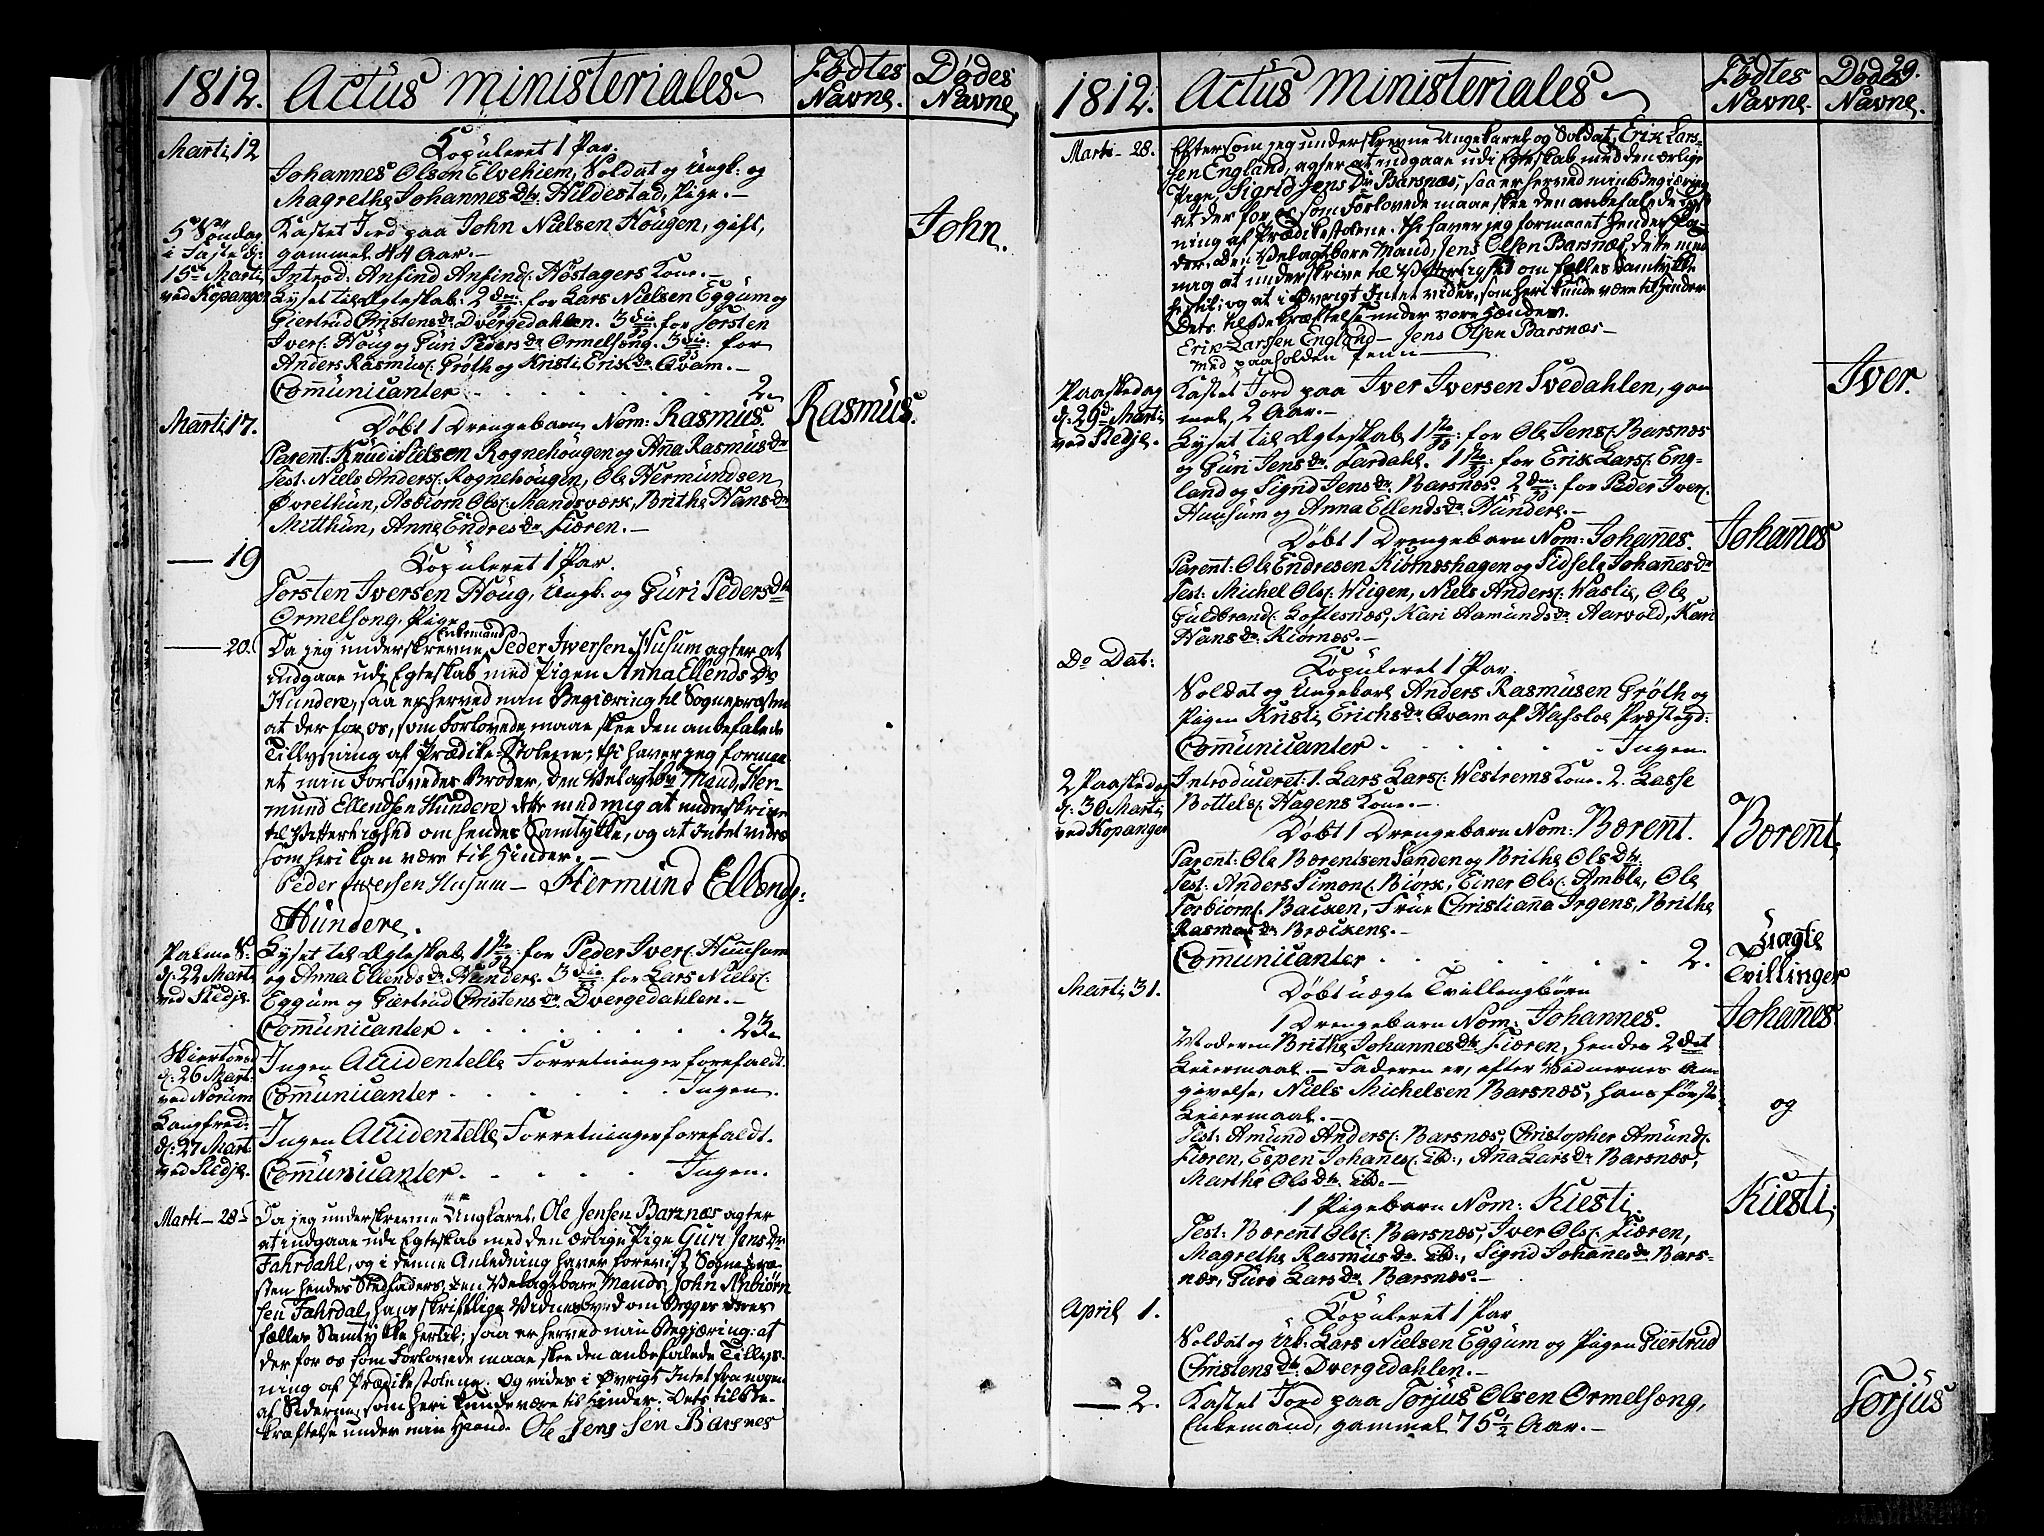 1812. Actus ministeriales Fødtes Navne. Dødes Navne
Marti 12 Kopuleret 1 Par.
Johannes Olson Elvehiem, Soldat og Ungk: og
Magrethe Johannes Dtr Hildestad, Pige. –
5te Søndag Kastet Jord paa John Nielsen Hougen, gift, John.
i Faste d: gammel 44 Aar. –
15de Marti Introd: Anfind Anfinds: Høstagers Kone. –
ved Kopanger Lyset til Ægteskab: 2den: for Lars Nielsen Eggum og
Giertrud Christens Dr Dvergedahlen. 3die: for Torsten
Ivers: Houg og Guri Peders Dr Ormelsong. 3die: for
Anders Rasmus: Grøth og Kristi Erik Dr Qvam. –
Communicanter . . . . . . 2.
Marti 17. Døbt 1 Drengebarn Nom: Rasmus. Rasmus.
Parent: Knud Nielsen Rognehougen og Ana Rasmus Dr
Test: Niels Anders: Rognehougen, Ole Hermundsen
Øvrethun, Asbiørn Ols: Mandsværk, Brithe Hans Dr
Mitthun, Anna Endres Dr Fiæren. –
— 19 Kopuleret 1 Par.
Torsten Iversen Houg, Ungk: og Guri Peders Dtr
Ormelsong, Pige
— 20. Da jeg underskrevne Enkemand Peder Iwersen Husum agter at
indgaae udi Egteskab med Pigen Anna Ellends Dr
Hundere, saa er herved min Begiæring til Sognepræsten
at der for os, som Forlovede, maae skee den anbefalede
Tillysning af Prædike-Stolene, thi haver jeg forma-
et min Forlovedes Broder, den Velagtb: Mand, Her-
mund Ellendsen Hundere dette med mig at underskrive
til Vitterlighed om hendes Samtykke, og at Intet vides
som heri kan være til Hinder. –
Peder Iwersen Husum – Hermund Ellends:
Hundere.
Palme S: Lyset til Ægteskab 1ste: for Peder Ivers: Huusum
d: 22 Mart: og Anna Ellends Dr Hundere. 3die: for Lars Niels:
ved Stedje. Eggum og Giertrud Christens Dr Dvergedahlen. –
Communicanter . . . . . . . 23.
Skiertorsd: Ingen Accidentelle Forretninger forefaldt.
d: 26 Mart:
ved Norum Communicanter . . . . . Ingen.
Langfred: Ingen Accidentelle Forretninger forefaldt.
d: 27 Mart:
ved Stedje. Communicanter . . . . Ingen.
Marti – 28 – Da jeg underskrevne Ungkarel, Ole Jensen Barsnæs agter
at indgaae udi Egteskab med den ærlige Pige Guri Jens Dr
Fahrdahl, og i denne Anledning haver forevist Sognepræ-
sten hendes Stedfaders den Velagtbare Mands, John Anbiørn
sen Fahrdal, hans skriftlige Vidnesbyrd om Begges deres
fælles Samtykke hertil; saa er herved min Begjæring: at
der for os som Forlovede maae skee den anbefalede Tillys-
ning af Prædikestolene. Og vides i Øvrigt Intet fra nogen
af Siderne, som heri kunde være til Hinder. Dets til Be-
kræftelse under min Haand. Ole Jens Sen Barsnes
1812. Actus ministeriales Fødtes Navne. Dødes Navne. 29.
Marti – 28. Eftersom jeg underskrevne Ungekarel og Soldat, Erik Lars-
sen England, agter at indgaae udi Egteskab med den ærlige
Pige, Sigrid Jens Dr Barsnæs, saa er herved min Begiæring
at der for os som Forlovede maae skee den anbefalede Lys-
ning af Prædikestolene. Thi haver jeg formaaet hendes Fa-
der, den Velagtbare Mand, Jens Olsen Barsnæs, dette med
mig at underskrive til Vitterlighed om fælles Samtykke
hertil; og at i Øvrigt Intet vides, som heri kunde være til Hinder
Dets til Bekræftelse under vore Hænder.
Erik Larssen England – Jens Olsen Barsnæs –
med paaholden Penn
Paaskedag Kastet Jord paa Iver Iversen Svedahlen, gam Iver.
d: 29de Marti mel 2 Aar. –
ved Stedje. Lyset til Ægteskab 1ste: for Ole Jens: Barsnæs
og Guri Jens Dr Fardahl. 1ste: for Erik Lars: Eng-
land og Sigrid Jens Dr Barsnæs. 2den: for Peder Iver:
Huusum og Anna Ellends Dr Hundere. –
Døbt 1 Drengebarn Nom: Johannes. Johannes
Parent: Ole Endresen Kiørneshagen og Sidsele Johannes Dr
Test: Michel Ols: Wiigen, Niels Anders: Waslie, Ole
Guldbrands: Loftesnæs, Kari Aamunds Dr Aarvold, Kari
Hans Dr Kiørnæs. –
Do Dat: Kopuleret 1 Par.
Soldat og Ungekarl Anders Rasmusen Grøth og
Pigen Kristi Erichs Dr Qvam af Hafsloe Præstegd:
Communicanter . . . . . Ingen.
2 Paaskedag Introduceret: 1. Lars Lars: Westrems Kone. 2. Lasse
d: 30 Marti Bottels: Hagens Kone. –
ved Kopanger Døbt 1 Drengebarn Nom: Børent. Børent.
Parent: Ole Børentsen Sanden og Brithe Ols Dtr.
Test: Anders Simons: Biørk, Einer Ols: Amble, Ole
Torbiørns: Backen, Frue Christianna Irgens, Brithe
Rasmus Dr Bræckene. –
Communicanter . . . . . . 2. Uægte
Tvillinger
Marti 31. Døbt uægte Tvillingbørn
1 Drengebarn Nom: Johannes. Johannes.
Moderen Brithe Johannes Dtr Fiæren, hendes 2det
Leiermaal. – Faderen er, efter Vidnernes An-
givelse, Niels Michelsen Barsnæs, hans første
Leiermaal. – og
Test: Amund Anders: Barsnæs, Christopher Amunds:
Fiæren, Espen Johannes: ibd:, Anna Lars Dr Barsnæs,
Marthe Ols Dtr ibd: –
1 Pigebarn Nom: Kiesti. Kiesti.
Test: Børent Ols: Barsnæs, Iver Ols: Fiæren,
Magrethe Rasmus Dr ibd:, Sigrid Johannes Dr Bars-
næs, Guro Lars Dr Barsnæs. –
April 1. Kopuleret 1 Par
Soldat og Uk: Lars Nielsen Eggum og Pigen Giertrud
Christens Dtr Dvergedahlen. –
— 2. Kastet Jord paa Torjus Olsen Ormelsong, Torjus
Enkemand, gammel 75 1/2 Aar. –